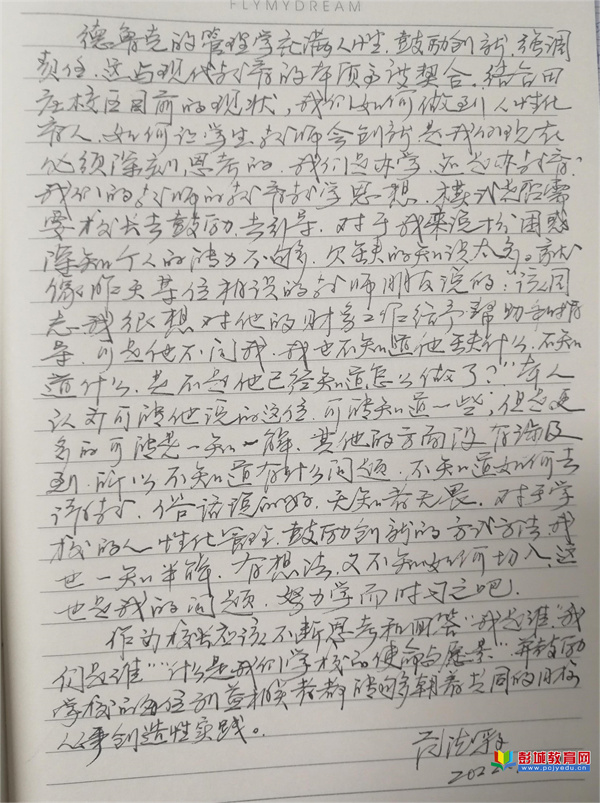 FLYMYDREAM
德鲁克的管理学充满人性，鼓励创新，强调
责任，这与现代教育的本质高度契合。结合田
庄校区目前的现状，我们如何做到人性化
育人，如何让学生、教师会创新是我们现在
必须深刻思考的。我们是办学，还是办教育？
我们的教师的教育教学思想、模式是否需
要校长去鼓励、去引导。对于我来说十分困惑
深知个人的能力不够多，欠缺的知识太多。就
像昨天某位相识的教师朋友说的："该同
志我很想对他的财务工作给予帮助和指
导，可是他不问我，我也不知道他缺什么，不知
道什么，是不是他已经知道怎么做了？"本人
认为可能他说的这位，可能知道一些，但是更
多的可能是一知一解，其他的方面没有涉及
到，所以不知道有什么问题，不知道如何去
请教。俗话说的好，无知者无畏。对于学
校的人性化管理、鼓励创新的方式方法，我
也一知半解，有想法，又不知如何切入，这
也是我的问题，努力学而时习之吧。
作为校长应该不断思考和回答"我是谁""我
们是谁""什么是我们学校的使命与愿景"并鼓励
学校的每位利益相关者都能够朝着共同的目标
从事创造性实践。
2022.
彭城教育网
www.pcjyedu.cn